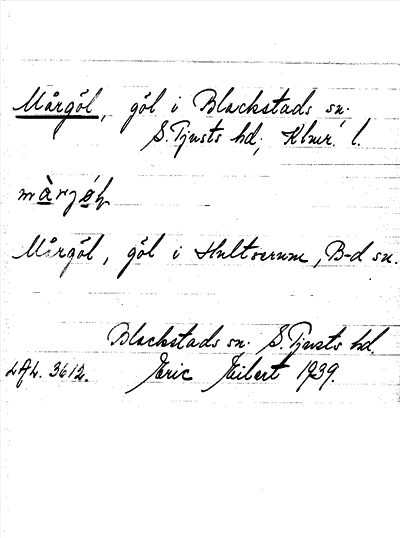 Mårgöl, göl i Blackstads sn.
S. Tjusts hd., Klmr. l.
màrjöl
Mårgöl, göl i Hultserum, B-d sn.
Blackstads sn. S. Tjusts hd.
LAL. 3612. Eric Eibert 1939.